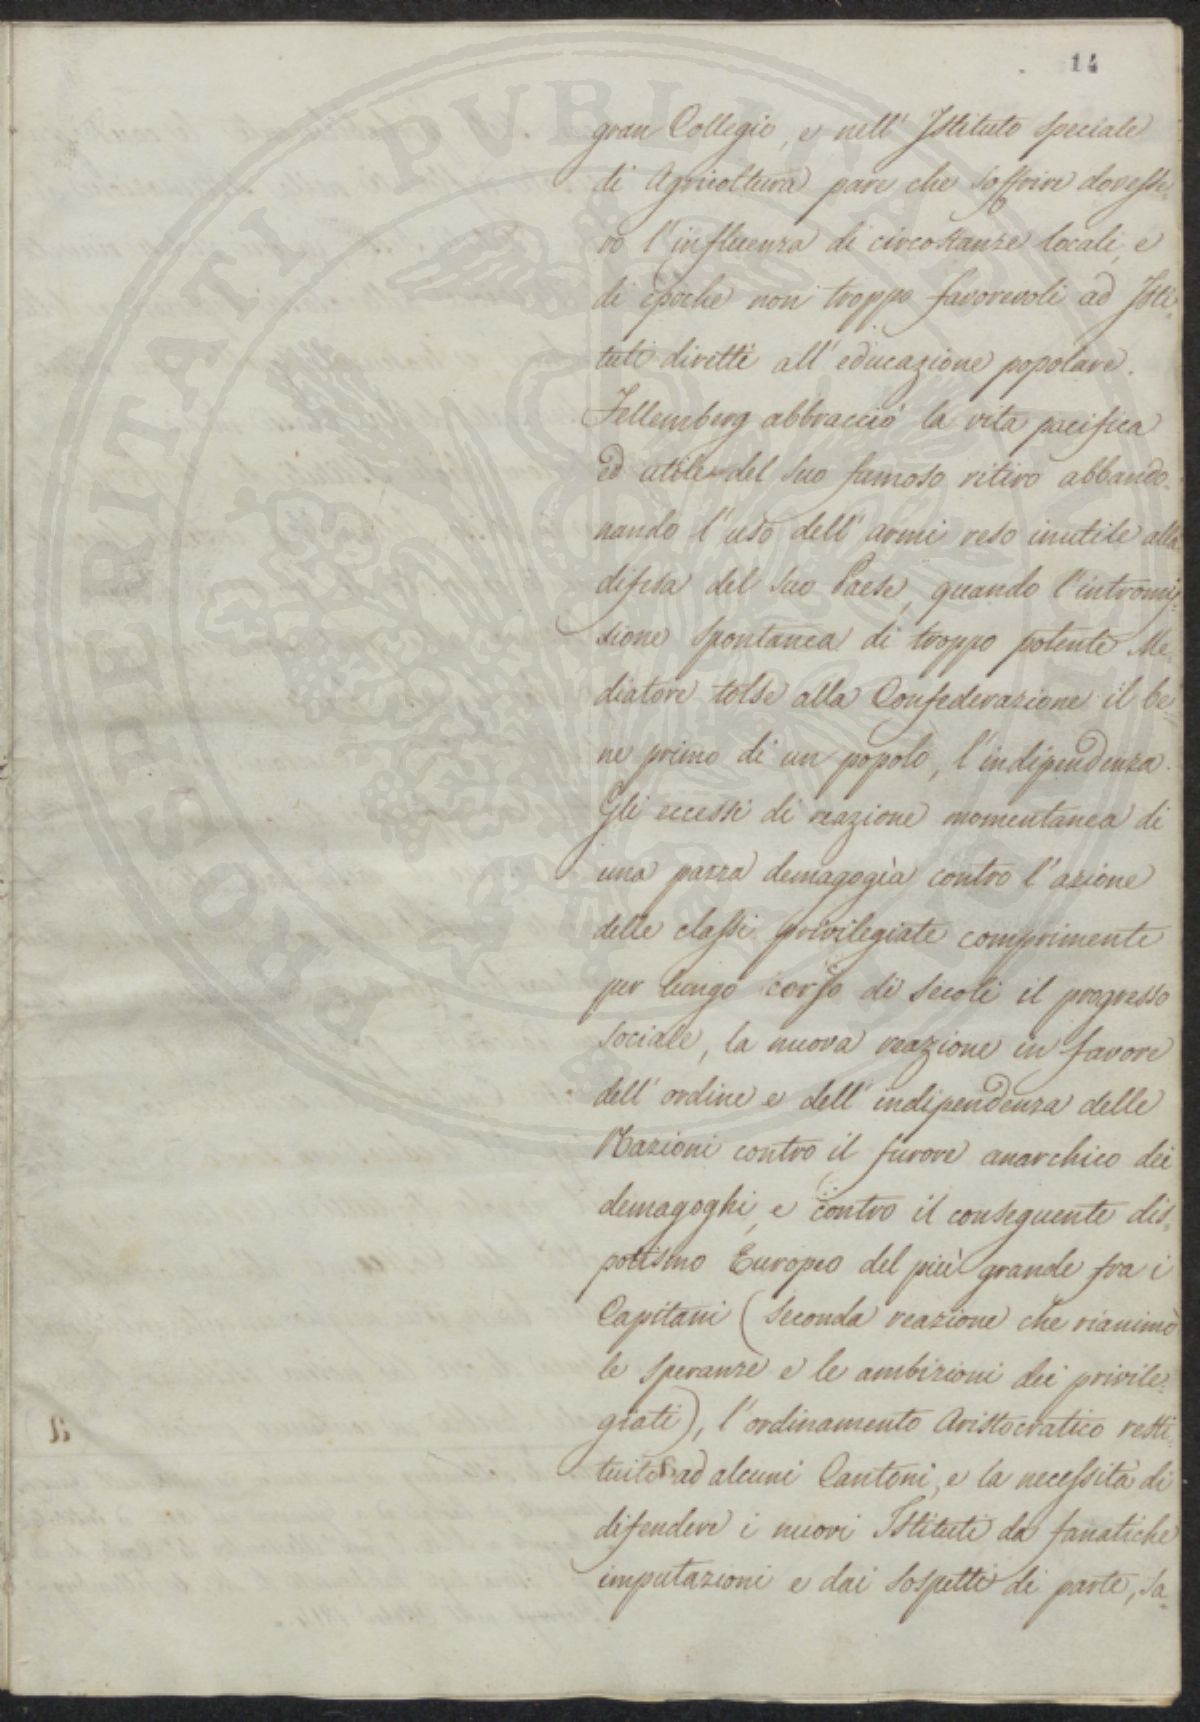 14
gran Collegio, e nell' Istituto speciale
di Agricoltura pare che soffrire dovesse-
ro l'influenza di circostanze locali, e
di epoche non troppo favorevoli ad Isti-
tuti diretti all' educazione popolare.
Fellemberg abbracciò la vita pacifica
ed utile del suo famoso ritiro abbando-
nando l'uso dell' armi reso inutile alla
difesa del suo Paese, quando l'intromi-
sione spontanea di troppo potente Me-
diatore tolse alla Confederazione il be-
ne primo di un popolo, l'indipendenza.
Gli eccessi di reazione momentanea di
una pazza demagogìa contro l'azione
delle classi privilegiate comprimente
per lungo corso di secoli il progresso
sociale, la nuova reazione in favore
dell' ordine e dell' indipendenza delle
Nazioni contro il furore anarchico dei
demagoghi, e contro il conseguente dis-
potismo Europeo del più grande fra i
Capitani (seconda reazione che rianimò
le speranze e le ambizioni dei privile-
giati), l'ordinamento Aristocratico resti-
tuito ad alcuni Cantoni, e la necessità di
difendere i nuovi Istituti da fanatiche
imputazioni e dai sospetti di parte, sa-
PUBLICAE
PROSPERITATI